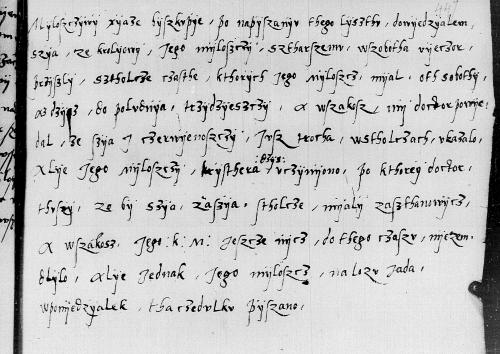 Myloszczywy xyąże byszkupye, po napyszanyv thego lysztv, dowyedzyalem,
szya, ze krolyowy, Jego myloszczy, sztharszemv, wszobotha vyeczor,
przyszly, sztholcze czasthe, kthorych Jego myloszcz, myal, oth sobothy,
az dzyszya, do polvdnya, trzydzyeszczy, A wszakosz, my doctor powye
dal, ze szya J czerwyenoszczy, Jvsz trocha, wstholczach, vkazalo,
Alye Jego myloszczy, krysthera dzys: vczynyono, po kthorey doctor,
thvszy, ze by szya, zaszya. stholcze, myaly zaszthanowycz,
A wszakosz, Jego: k: M: Jeszcze nycz, do thego czaszv, nyezem
dlylo, Alye Jednak, Jego myloszcz, na lozv Jada,
wponyedzyalek, tha czedvlkv pyszano,